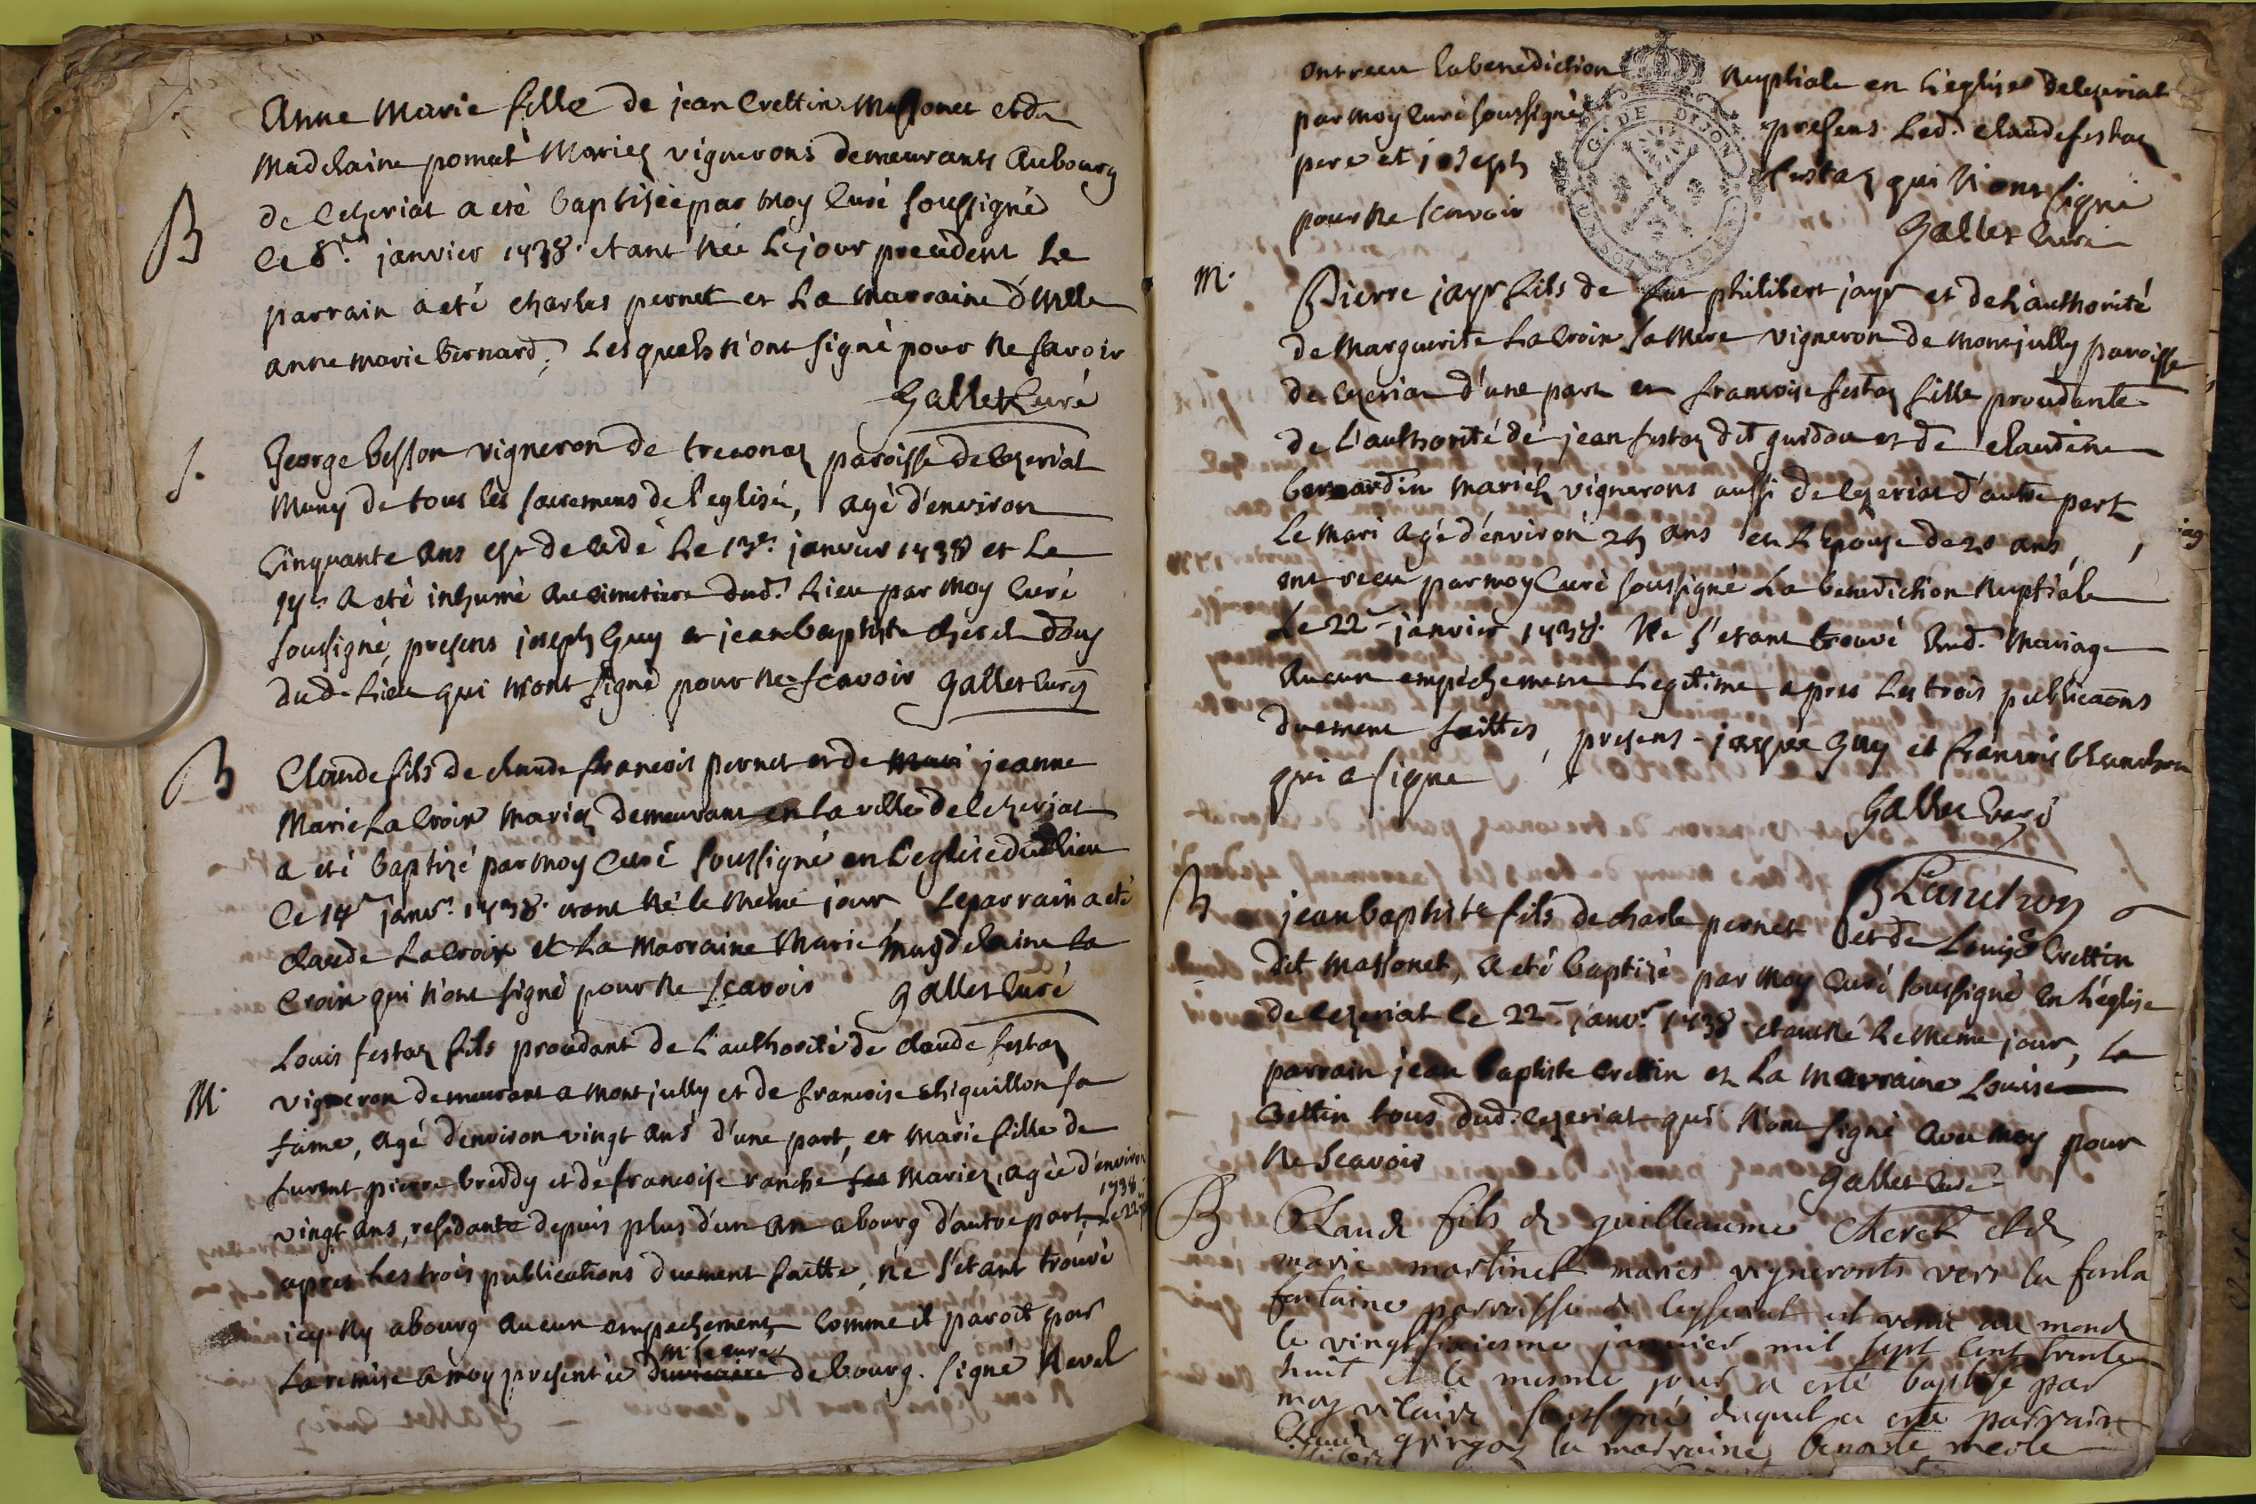 B
Anne Marie fille de jean Crettin Massonet et de
Madelaine pomat Mariez vignerons demeurants Aubourg
de Cezeriat a eté baptiséé par moy Curé soussigné
le 8e. janvier 1738. etant Née Le jour precedent Le
parrain a eté Charles pernet et La marraine d'Mlle
anne marie bernard. Lesquels n'ont signé pour Ne savoir
Gallet Curé
S.
George besson vigneron de treconaz paroisse de Cezeriat
Muny de tous les sacremens de l'eglise, agé d'environ
Cinquante ans est decedé Le 13e. janvier 1738 et Le
a eté inhumé au cimetiere dud. Lieu par moy Curé
soussigné, presens joseph Guy et jean baptiste
dud. Lieu qui n'ont signé pour Ne scavoir Gallet Curé
B
Claude fils de claude francois pernet et de jeanne
Marie LaCroix Mariez demeurant en la ville de Cezeriat
a eté baptizé par moy Curé soussigné en L'eglise dud lieu
le 14e janvr. 1738. etant Né le même jour Le parrain a eté
claude LaCroix et La Marraine Marie magdelaine La
Croix qui n'ont signé pour Ne scavoir Gallet Curé
M.
Louis festaz fils procedant de L'authorité de claude festaz
vigneron demeurant a montjully et de francoise chiquillon sa
fame, agé d'environ vingt ans d'une part, et Marie fille de
furent pierre breddy et de francoise ranché Mariez, agée d'environ
vingt ans, residante depuis plus d'un an a bourg d'autre part, Le 22 1738
apres Les trois publications duement faitte, ne s'etant trouvé
icy Ny abourg aucun empechement Comme il paroit par
La remise a moy presentée Mr le curé de bourg. signé Revel
ont receu la benediction Nuptiale en L'eglise de Cezeriat
par moy Curé soussigné presens Led. claude festaz
pere et joseph festaz qui N'ont signé
pour Ne scavoir
Gallet Curé
M.
Pierre jayr fils de fut philibert jayr et de L'authorité
de Marguerite LaCroix sa Mere vigneron de montjully paroisse
de Cezeriat d'une part et francoise festaz fille procedante
de L'authorité de jean festaz dit et de claudine
bernardin mariéz vignerons aussi de Cezeriat d'autre part
Le mari agé d'environ ans et L'epouse de 20 ans,
ont receu par moy Curé soussigné La benediction Nuptiale
Le 22e janvier 1738. Ne s'etant trouvé Aud. Mariage
Aucun empéchement Legitime apres Les trois publicaons
duement faittes, presens Guy et francois blanchon
qui a signe
Gallet Curé
Blanchon
B
jean baptiste fils de charle pernet et de Louise Crettin
dit Massonet, a eté baptizé par moy Curé soussigné en L'église
de Cezeriat le 22e. janvr. 1738. etant Né Le même jour, Le
parrain jean baptiste Crettin et La marraine Louise
Crettin tous dud. Cezeriat qui N'ont signé avec moy pour
Ne Scavoir
Gallet Curé
B
Claude fils de guilleaume Cheret et de
marie martinet mariés vigneronts vers la
fontaine parroisse de est venu au monde
le vingt sixiesme janvier mil sept cent trente
huit et le mesme jour a esté baptisé par
moy vicaire soussigné duquel a esté parrain
Claude la marraine benoiste merle